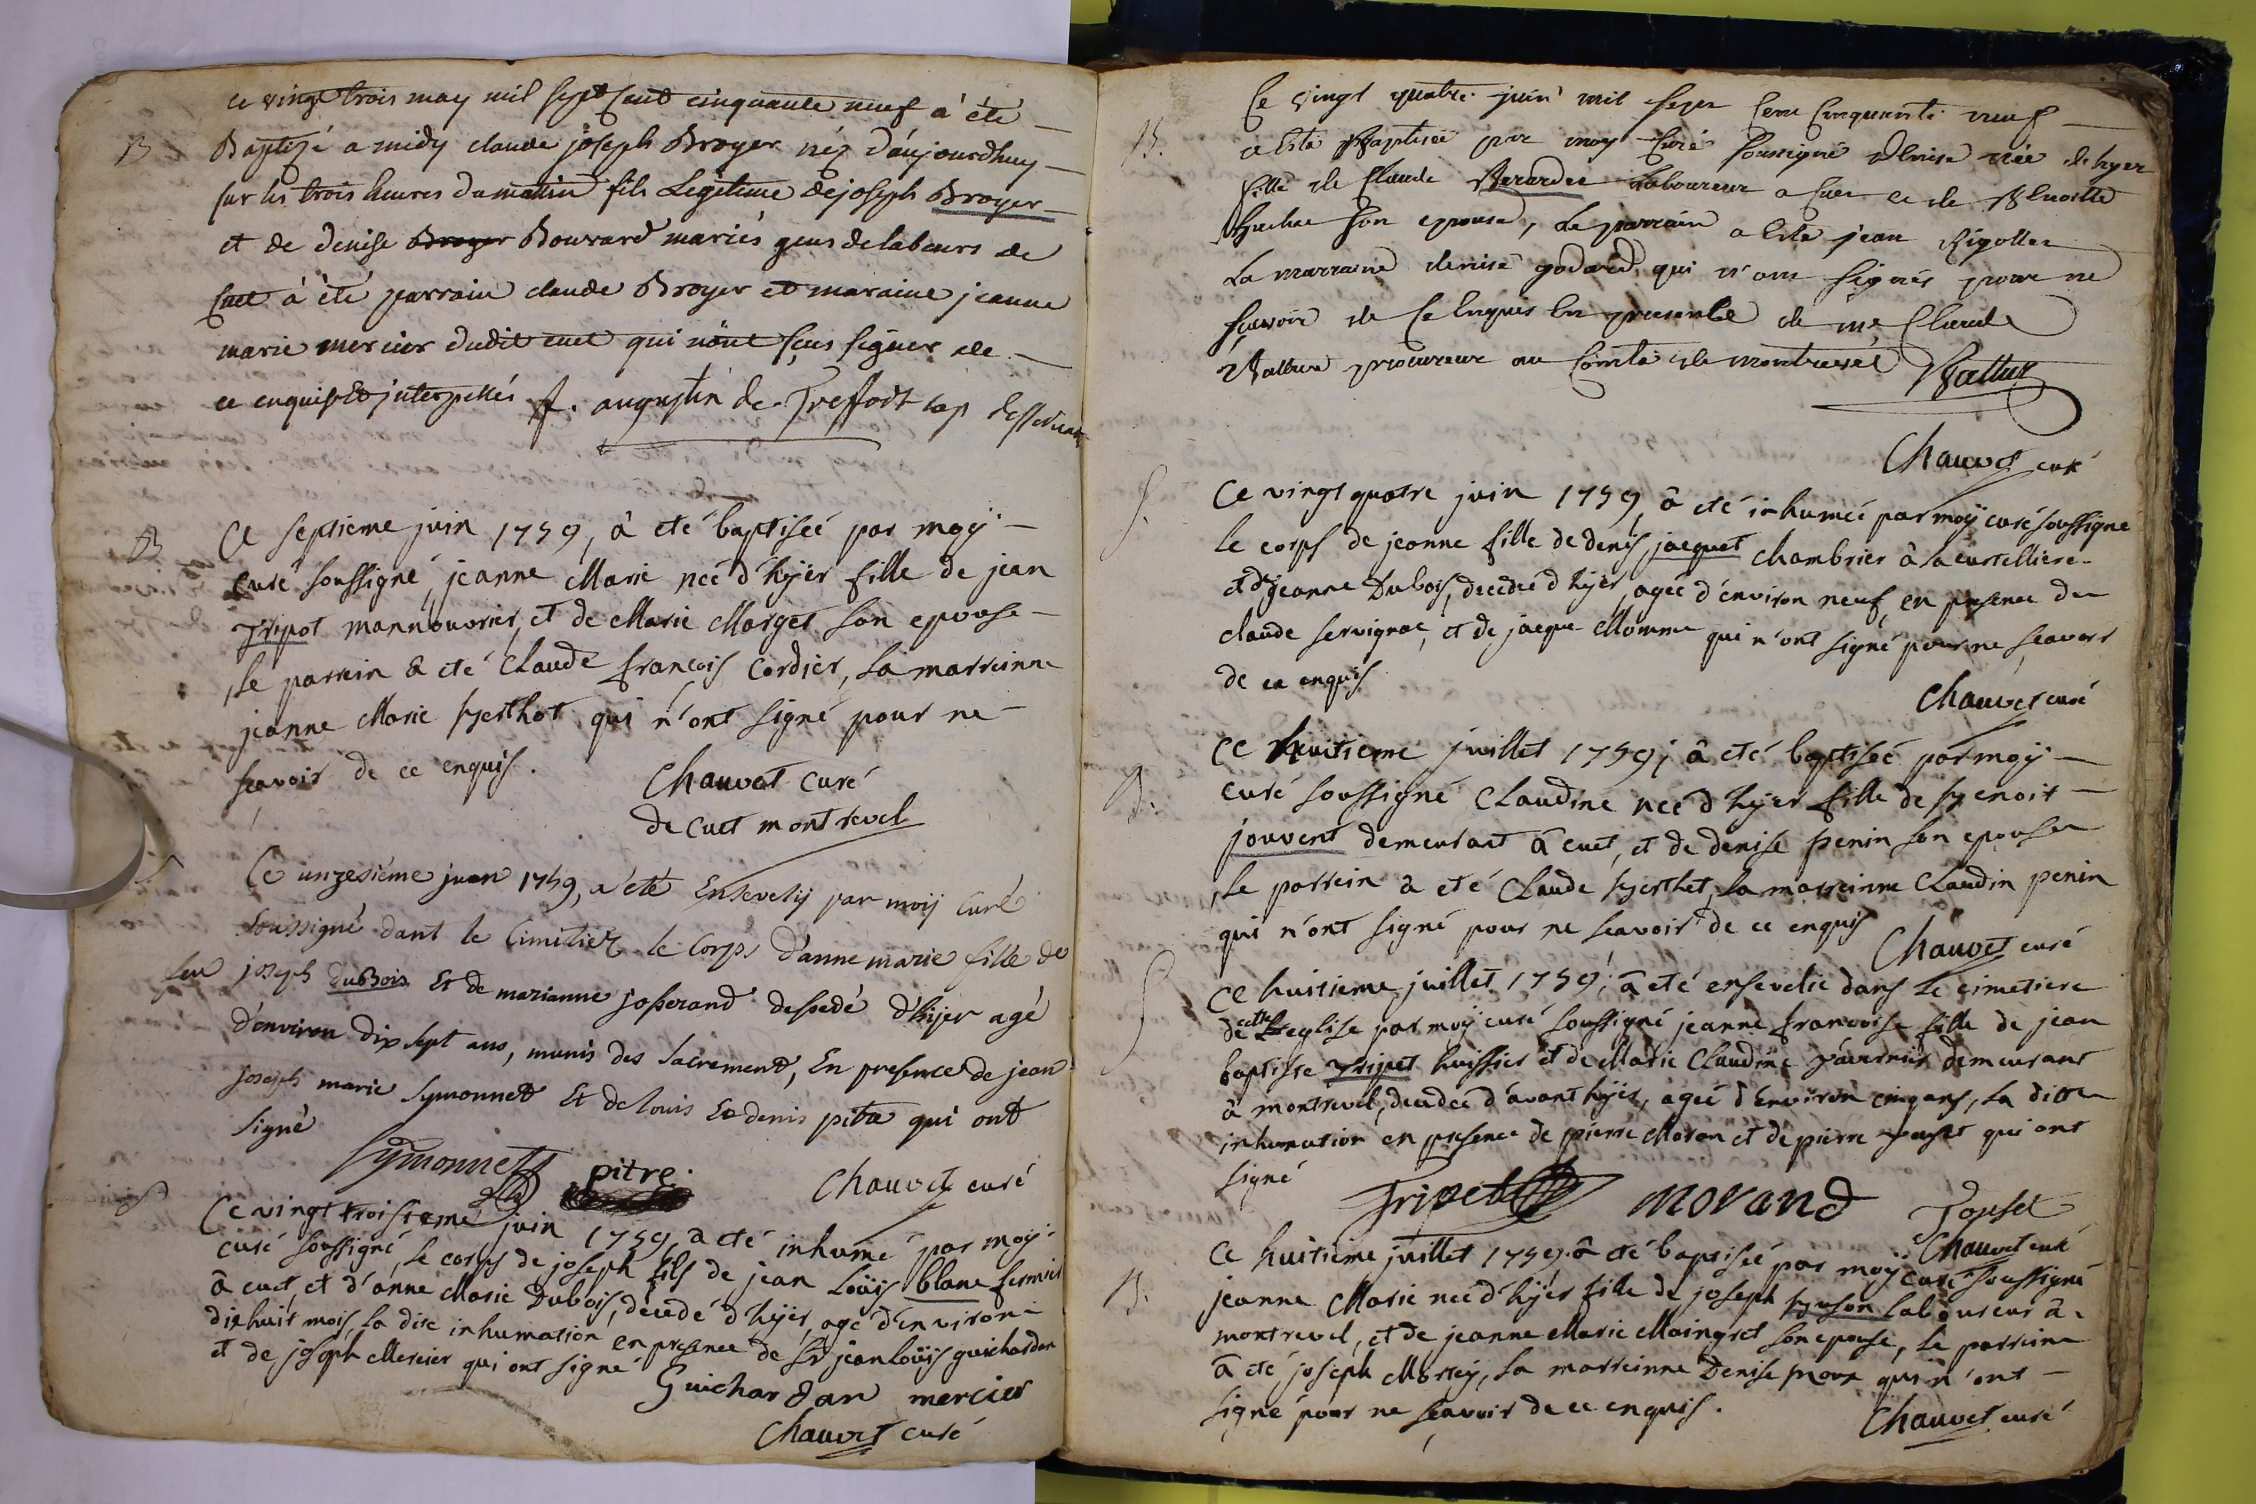 ce vingt trois may mil sept cent cinquante neuf a été
B Baptizé a midy claude joseph Broyer néz d'aujourdhuy
sur les trois heures du matin fils Legitime de joseph Broyer
et de denise Broyer Bouvard mariés gens de labeurs de
cuet à été parrain claude Broyer et maraine jeanne
marie mercier dudit cuet qui n'ont sçus signer de
ce enquis et interpellés f. augustin de Treffort cap desservant
B Ce septieme juin 1759, à eté baptiseé par moÿ
curé soussigné, jeanne Marie neé d'hÿer fille de jean
Tripot mannouvrier, et de Marie Marget son epouse
le parrein a eté Claude françois Cordier, la marreinne
jeanne Marie Berthot qui n'ont signé pour ne
scavoir de ce enquis.
Chauvet curé
de cuet montrevel
S Ce unzesiéme juin 1759, a été Ensevelÿ par moÿ Curé
soussigné dant le Cimitier le Corps d'anne marie fille de
feu joseph DuBois Et de marianne josserand desedé d'hijer agé
d'environ dix sept ans, munis des sacrement, En presence de jean
joseph marie symonnet Et de louis Et denis pitre qui ont
signé
Symonnet pitre. Chauvet curé
S Ce vingt troisieme juin 1759, a eté inhumé par moÿ
curé soussigné, le corps de joseph fils de jean Loüis blanc fermier
à cuet, et d'anne Marie Dubois, decedé d'hÿer, agé d'environ
dixhuit mois, la dite inhumation en presence de Sr jean loüis guichardan
et de joseph Mercier qui ont signé
Guichardan mercier
Chauvet curé
Ce vingt quatre juin mil sept Cent Cinquante neuf
B. a Esté Baptisée par moy Curé soussigné denise née de hyer
fille de Claude Berardet Laboureur a Cuet et de Benoitte
son epouse, Le parrain a Esté jean Rigollet
La marraine denise godard qui n'ont signés pour ne
sçavoir de Ce Enquis En presence de me Claude
Vattur procureur au Comté de montrevel Vattur
Chauvet curé
S. Ce vingt quatre juin 1759, à eté inhumeé par moÿ curé soussigné
le corps de jeanne fille de denis jacquet chambrier à la curtelliere
et de jeanne Dubois, decedeé d'hÿer, ageé d'environ neuf, en presence de
claude servignat, et de jacque Momme qui n'ont signé pour ne sçavoir
de ce enquis
Chauvet curé
B. Ce huitieme juillet 1759, à eté baptiseé par moÿ
curé soussigné Claudine neé d'hÿer fille de Benoit
jouvent demeurant à cuet, et de denise penin son epouse
le parrein a eté Claude Berthet, la marreinne Claudin penin
qui n'ont signé pour ne scavoir de ce enquis
Chauvet curé
S Ce huitieme juillet 1759, à eté ensevelie dans le cimetiere
de cette eglise par moÿ curé soussigné jeanne francoise fille de jean
baptiste Tripet huissier et de Marie Claudine demeurant
à montrevel, decedeé d'avant hÿer, ageé d'Environ cinq ans, la ditte
inhumation en presence de pierre Moran et de pierre qui ont
signé
Tripet Morand
Chauvet curé
B. Ce huitieme juillet 1759, à eté baptiseé par moÿ curé soussigné
jeanne Marie neé d'hÿer fille de joseph Buson laboureur à
montrevel, et de jeanne Marie Maingret son epouse, le parrein
à eté joseph la marreinne Denise qui n'ont
signé pour ne sçavoir de ce enquis.
Chauvet curé